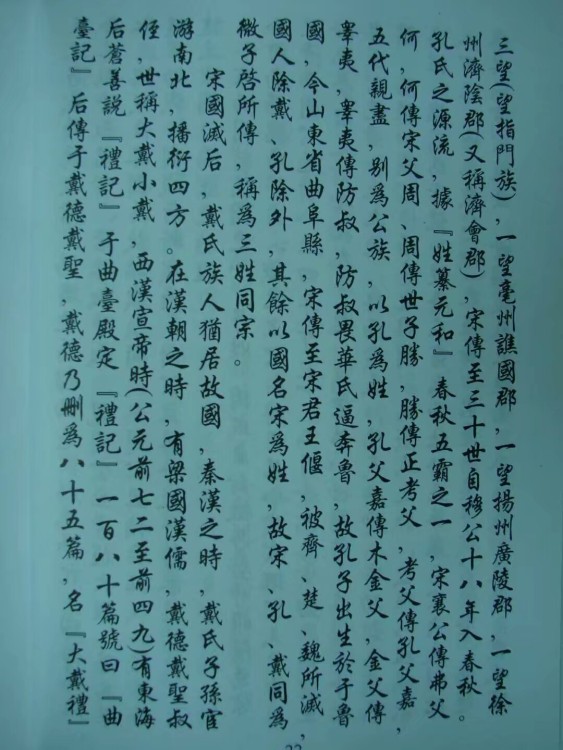 三望(望指門族),一望毫州譙國郡,一望揚州廣陵郡,一望徐
州濟陰郡(又稱濟會郡),宋傳至三十世自穆公十八年入春秋。
孔氏之源流,據『姓纂元和』春秋五霸之一,宋襄公傳弗父
何,何傳宋父周、周傳世子勝,勝傳正考父,考父傳孔父嘉,
五代親盡,別為公族,以孔為姓,孔父嘉傳木金父,金父傳
睾夷,睾夷傳防叔,防叔畏華氏逼奔魯,故孔子出生於于魯
國,今山東省曲阜縣,宋傳至宋君王偃,被齊、楚、魏所滅,
國人除戴、孔除外,其餘以國名宋為姓,故宋、孔、戴同為
微子啓所傳,稱為三姓同宗。
宋國滅后,戴氏族人猶居故國,秦漢之時,戴氏子孫宦
游南北,播衍四方。在漢朝之時,有梁國漢儒,戴德戴聖叔
侄,世稱大戴小戴,西漢宣帝時(公元前七二至前四九)有東海
后蒼善説『禮記』于曲臺殿定『禮記』一百八十篇號曰『曲
臺記』后傳于戴德戴聖,戴德乃刪為八十五篇,名『大戴禮』